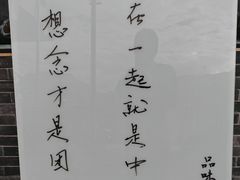 在一起就是中
想念才是团
品味